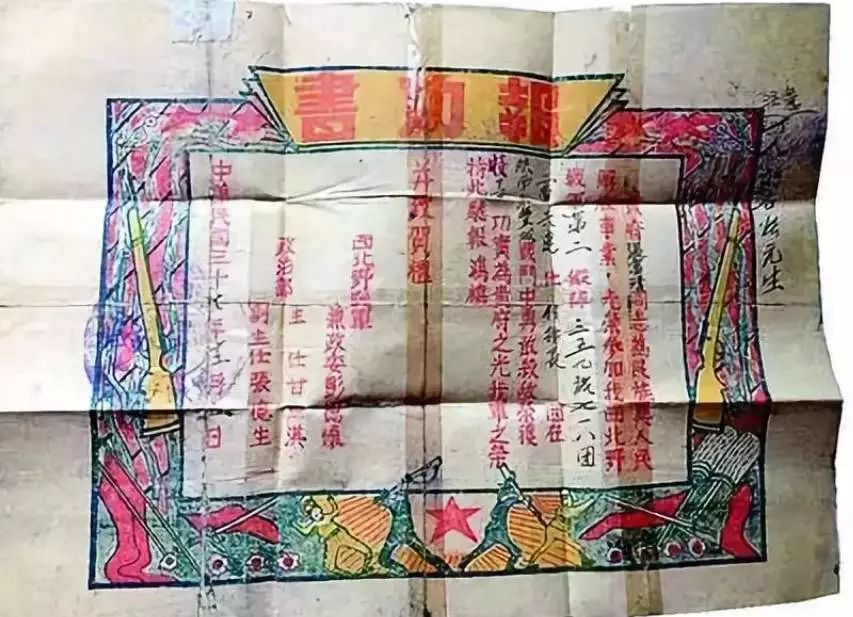 報功書
貴府張富清同志為民族與人民
解放事業，光榮參加我西北野
戰軍第二縱隊三五九旅七一八團
任 因在
戰鬥中勇敢殺敵榮獲
特等功實為貴府之光我軍之榮
特此馳報鴻禧
并致賀
西北野戰軍
兼政委彭德懷
政治部
主任甘泗淇
副主任張德生
中華民國三十七年十二月 日